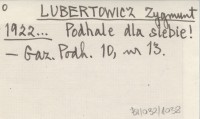 LUBERTOWICZ Zygmunt
1922... Podhale dla siebie!
— Gaz. Podh. 10, nr 13.